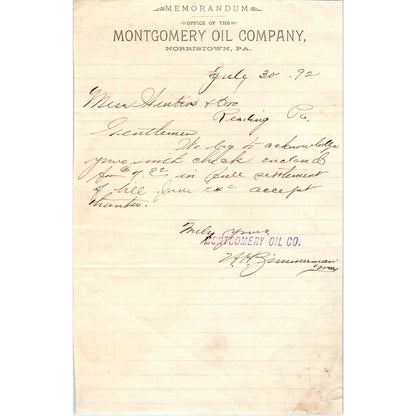 MEMORANDUM
OFFICE OF THE
MONTGOMERY OIL COMPANY,
NORRISTOWN, PA.
July 30 92
Mess & Bro
Reading Pa.
Gentlemen
We beg to acknowledge
yours with check enclosed
for in full settlement
of bill accept
thanks.
Truly Yours
MONTGOMERY OIL CO.
Zimmerman